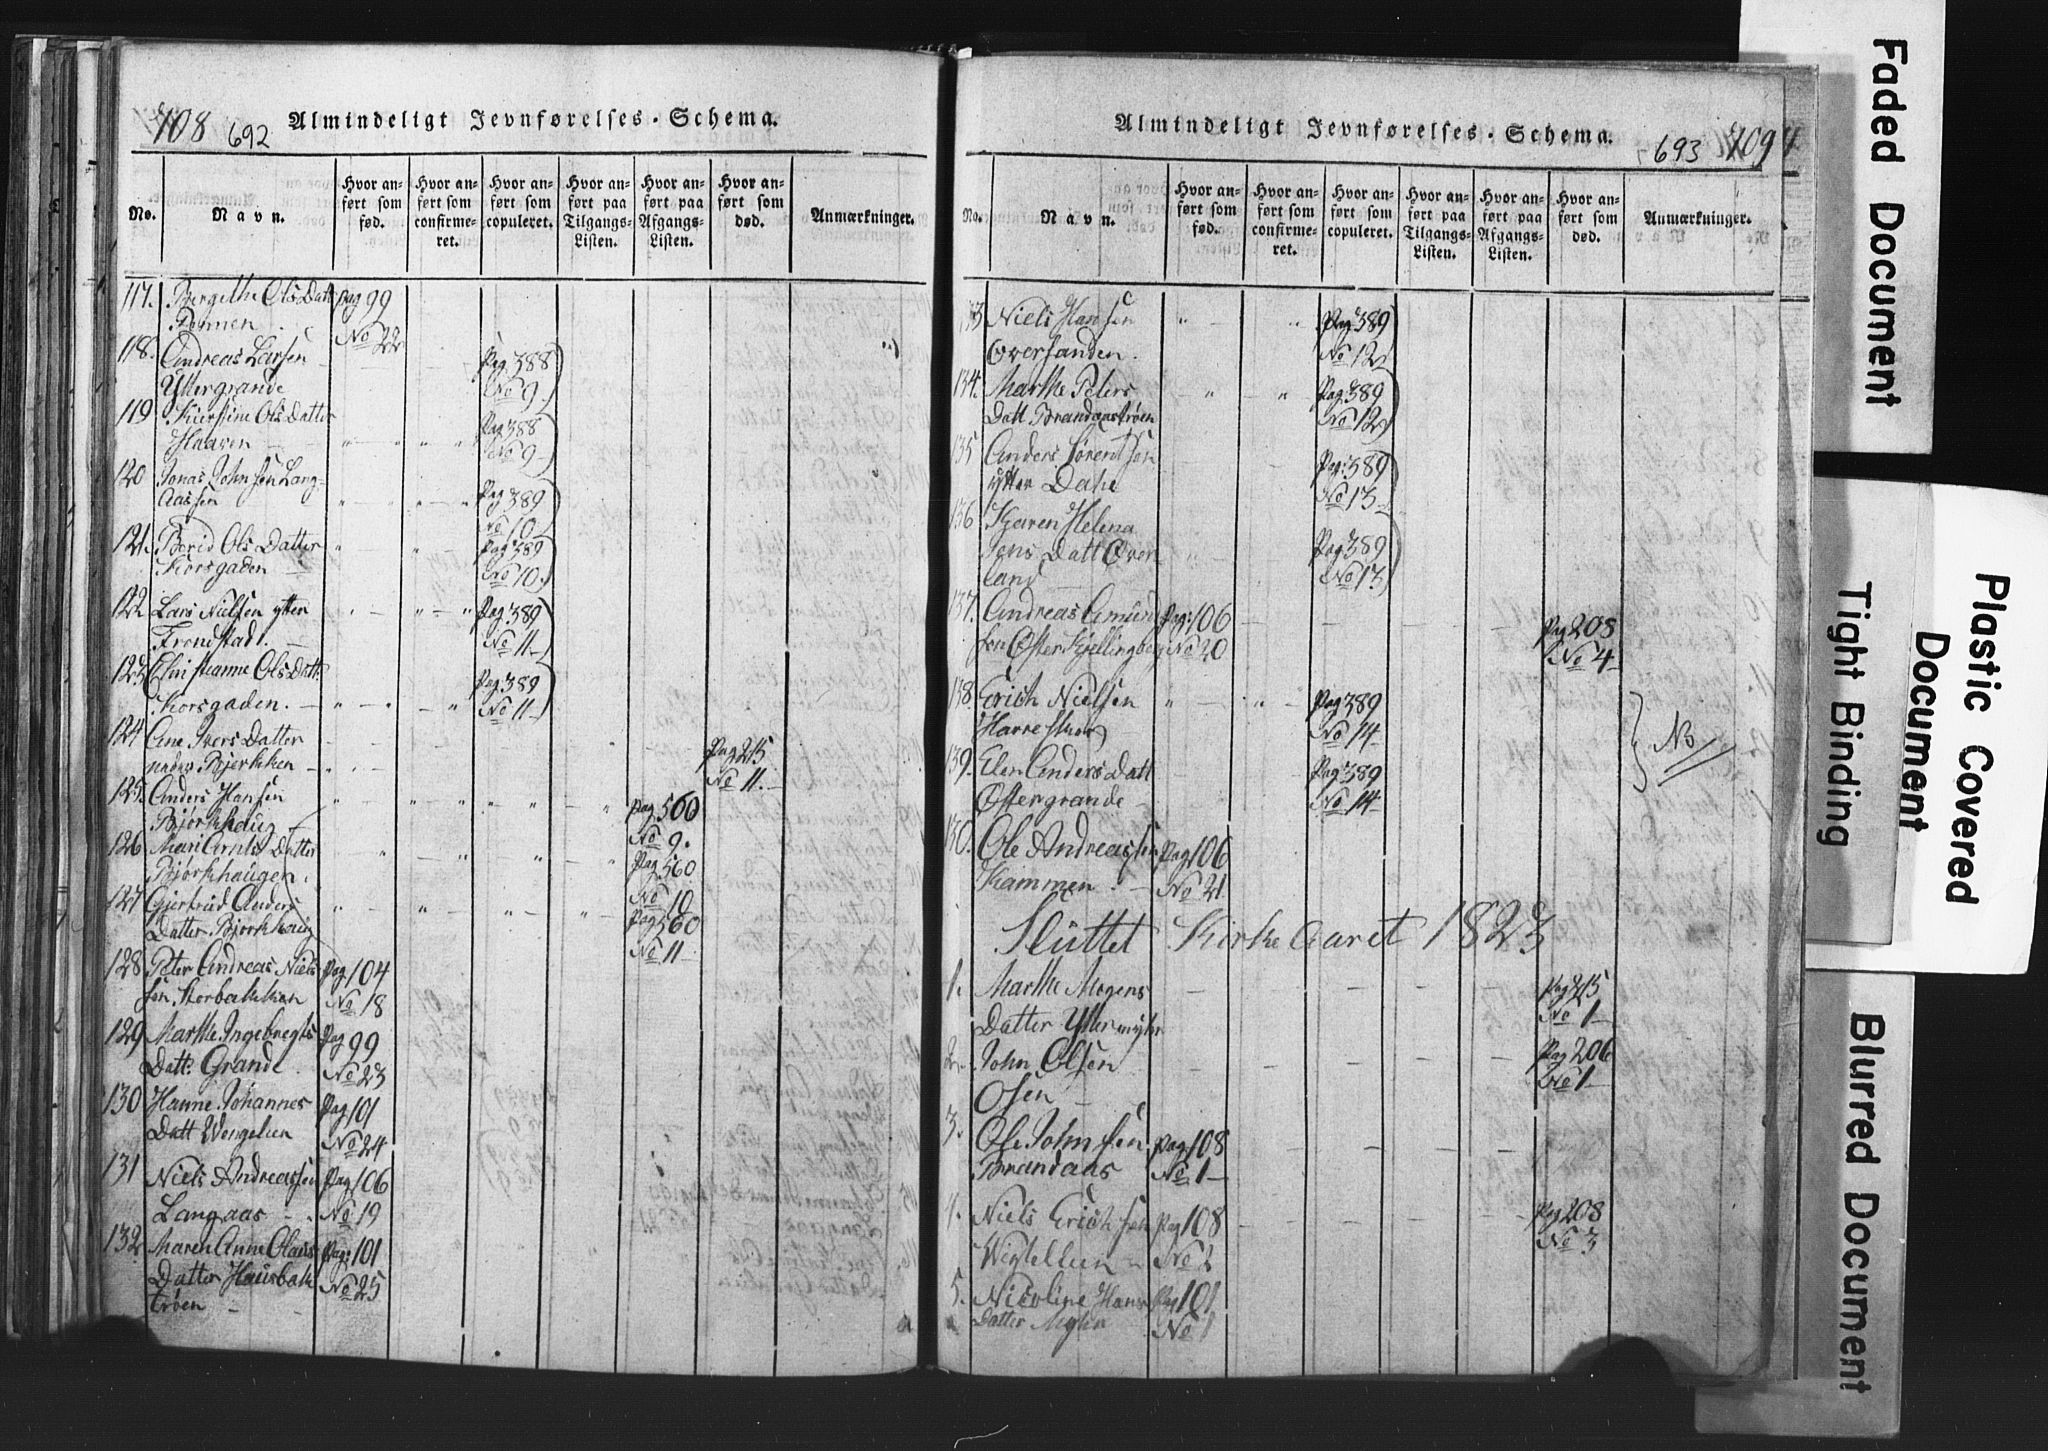 708 692
Almindeligt Jevnførelses-Schema.
No.
Navn.
Hvor anført som fød.
Hvor anført som confirmeret.
Hvor anført som copuleret.
Hvor anført paa Tilgangs-Listen.
Hvor anført paa Afgangs-Listen.
Hvor anført som død.
Anmærkninger.
117. Bergithe Ols Datt Pag 99
No 22
118. Andreas Larsen Pag 388
Yttergrande No 9
119 Kierstine Ols Datter Pag 388
Haaven No 9
120 Jonas Johnsen Lang- Pag 389
aassen No 10
121. Berid Ols Datter Pag 389
Korsgaden No 10.
122 Lars Nielsen ytter Pag 389
Frondstad. No 11
123 Christianne Ols Datt. Pag 389
Korsgaden. No 11
124 Ane Ivers Datter Pag 215
Bjerkken No 11.
125. Anders Hansen Pag 560
Bjørkhaug No 9.
126 Mari Arnts Datter Pag 560
Bjørkhaugen. No 10
127 Gjertrud Anders Pag 560
Datter Bjørkhaug No 11
128 Peter Andreas Niels Pag 104
sen Storbakken No 18
129 Marthe Ingebregts Pag 99
Datt. Grande No 23
130 Hanne Johannes Pag 101
Datt Wengelien No 24
131 Niels Andreassen Pag 106
Langaas No 19
132 Maren Anne Olaus Pag: 101
Datter Hausbak No 25
trøen
Almindeligt Jevnførelses-Schema.
693 709
No.
Navn.
Hvor anført som fød.
Hvor anført som confirmeret.
Hvor anført som copuleret.
Hvor anført paa Tilgangs-Listen.
Hvor anført paa Afgangs-Listen.
Hvor anført som død.
Anmærkninger.
133 Niels Hansen Pag 389
Oversanden. No 12
134. Marthe Peters Pag 389
Datt Brandaastrøen No 12
135 Anders Sørentsen Pag: 389
ytter Dahe No 13
136 Karen Helena
Jens Datt Over Pag 389
land No 13
137. Andreas Amund Pag: 106 Pag 208
sen Øster Kjellingberg No 20 No 4
138. Erich Nielsen Pag 389
No 14
139. Elen Anders Datt Pag 389
Østergrande No 14
No
Ole Andreassen Pag 106
Kammen. No 21
Sluttet Kirke Aaret 1823
1. Marthe Mogens Pag 215
Datter Yttermyhr No 1
2. John Olsen Pag 206
Osen No 1
3. Ole Johnsen Pag 108
Brandaas No 1
4. Niels Erichsen Pag 108 Pag 208
No 2 No 3
5. Nicoline Hans Pag 101
Datter Myhr No 1
Faded Document
Tight Binding
Plastic Covered
Document
Blurred Document